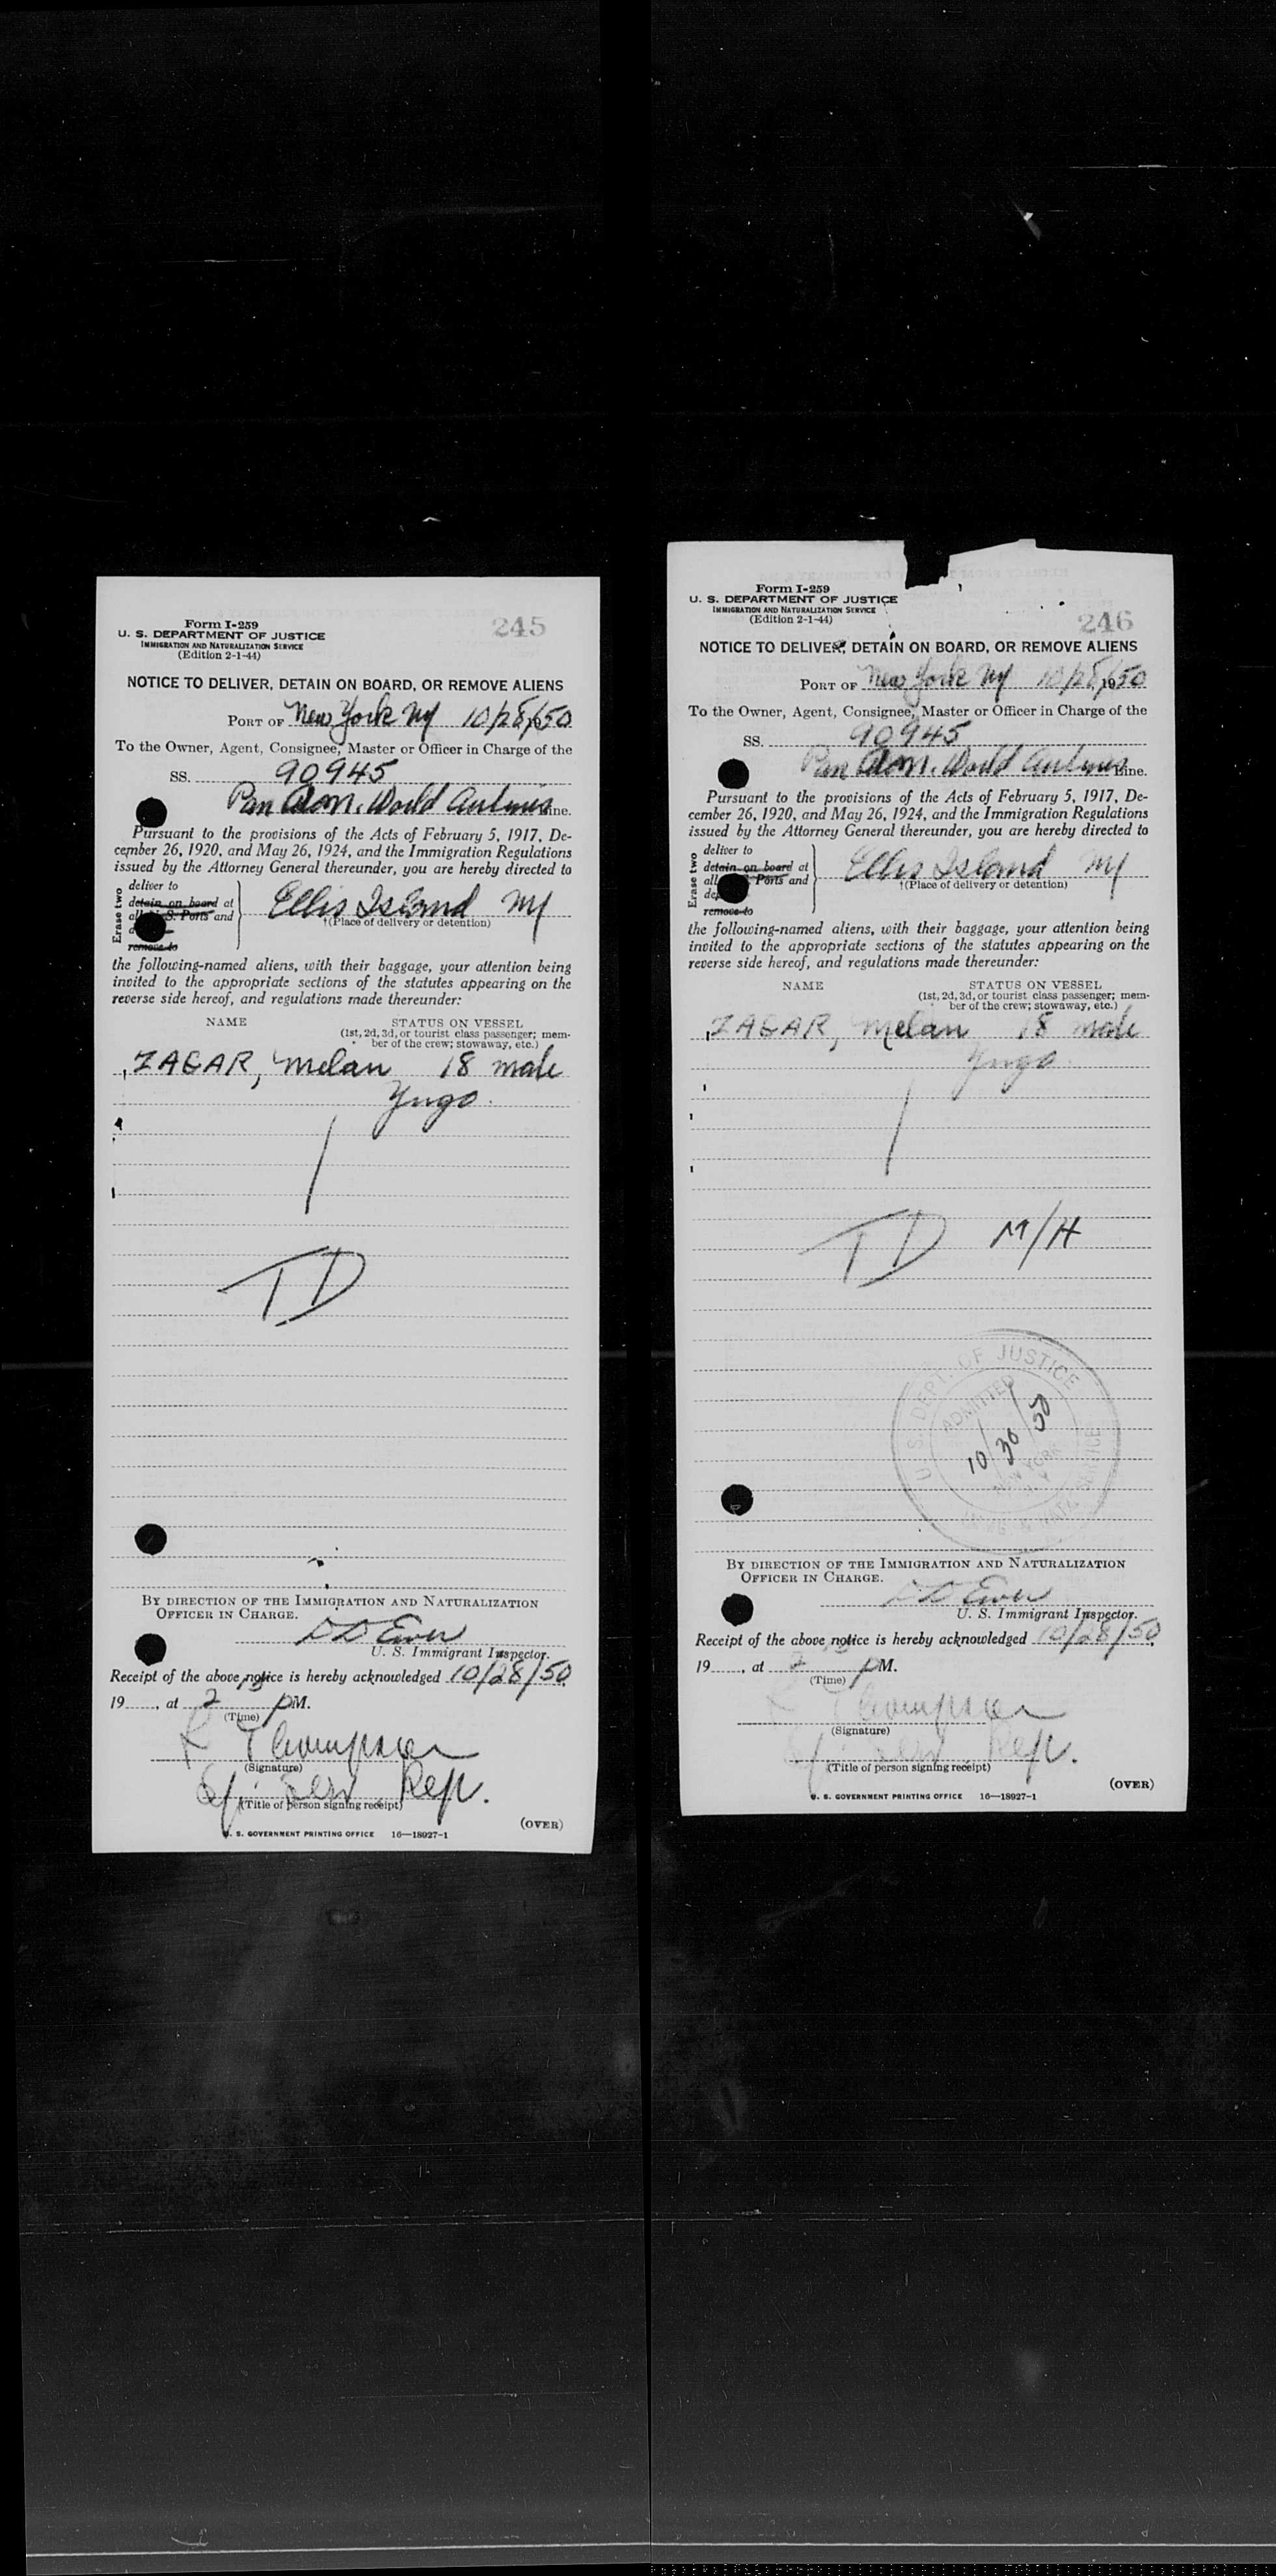 Form I-259
U. S. DEPARTMENT OF JUSTICE
IMMIGRATION AND NATURALIZATION SERVICE
(Edition 2-1-44)
245
NOTICE TO DELIVER, DETAIN ON BOARD, OR REMOVE ALIENS
PORT OF New York NY 10/28, 1950
To the Owner, Agent, Consignee, Master or Officer in Charge of the
SS. 90945
Pan Am. World Airlines Line.
Pursuant to the provisions of the Acts of February 5, 1917, De-
cember 26, 1920, and May 26, 1924, and the Immigration Regulations
issued by the Attorney General thereunder, you are hereby directed to
Erase two
deliver to
detain on board at
all U. S. Ports and
remove to
Ellis Island NY
†(Place of delivery or detention)
the following-named aliens, with their baggage, your attention being
invited to the appropriate sections of the statutes appearing on the
reverse side hereof, and regulations made thereunder:
NAME STATUS ON VESSEL
(1st, 2d, 3d, or tourist class passenger; mem-
ber of the crew; stowaway, etc.)
ZAGAR, Melan 18 male
Yugo.
TD
BY DIRECTION OF THE IMMIGRATION AND NATURALIZATION
OFFICER IN CHARGE.
U. S. Immigrant Inspector.
Receipt of the above notice is hereby acknowledged 10/28/50
19____, at 2 PM.
(Time)
Thompson
(Signature)
Rep.
(Title of person signing receipt)
(OVER)
U. S. GOVERNMENT PRINTING OFFICE 16—18927-1
Form I-259
U. S. DEPARTMENT OF JUSTICE
IMMIGRATION AND NATURALIZATION SERVICE
(Edition 2-1-44)
246
NOTICE TO DELIVER, DETAIN ON BOARD, OR REMOVE ALIENS
PORT OF New York NY 10/28, 1950
To the Owner, Agent, Consignee, Master or Officer in Charge of the
SS. 90945
Pan Am. World Airlines Line.
Pursuant to the provisions of the Acts of February 5, 1917, De-
cember 26, 1920, and May 26, 1924, and the Immigration Regulations
issued by the Attorney General thereunder, you are hereby directed to
Erase two
deliver to
detain on board at
all Ports and
remove to
Ellis Island NY
†(Place of delivery or detention)
the following-named aliens, with their baggage, your attention being
invited to the appropriate sections of the statutes appearing on the
reverse side hereof, and regulations made thereunder:
NAME STATUS ON VESSEL
(1st, 2d, 3d, or tourist class passenger; mem-
ber of the crew; stowaway, etc.)
ZAGAR, Melan 18 male
Yugo.
TD M/H
U. S. DEPT. OF JUSTICE
ADMITTED
10/30/50
NEW YORK
N. Y.
IMMIG. & NATZ. SERVICE
BY DIRECTION OF THE IMMIGRATION AND NATURALIZATION
OFFICER IN CHARGE.
U. S. Immigrant Inspector.
Receipt of the above notice is hereby acknowledged 10/28/50
19____, at 2 PM.
(Time)
Thompson
(Signature)
Rep.
(Title of person signing receipt)
(OVER)
U. S. GOVERNMENT PRINTING OFFICE 16—18927-1